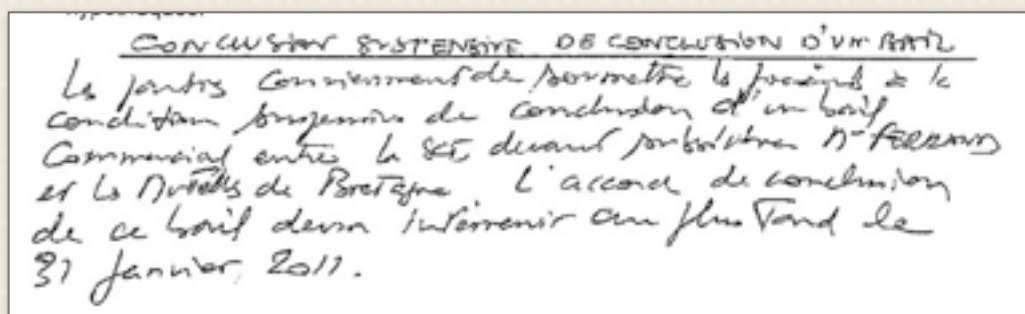 CONCLUSION SUSTENSIVE DE CONCLUSION D'UN BAIL
Les parties conviennent de soumettre la présente à la
condition suspensive de conclusion d'un bail
Commercial entre la SCI devant substituer Mr FERRAND
et les Mutuelles de Bretagne L'accord de conclusion
de ce bail devra intervenir au plus Tard le
31 janvier, 2011.